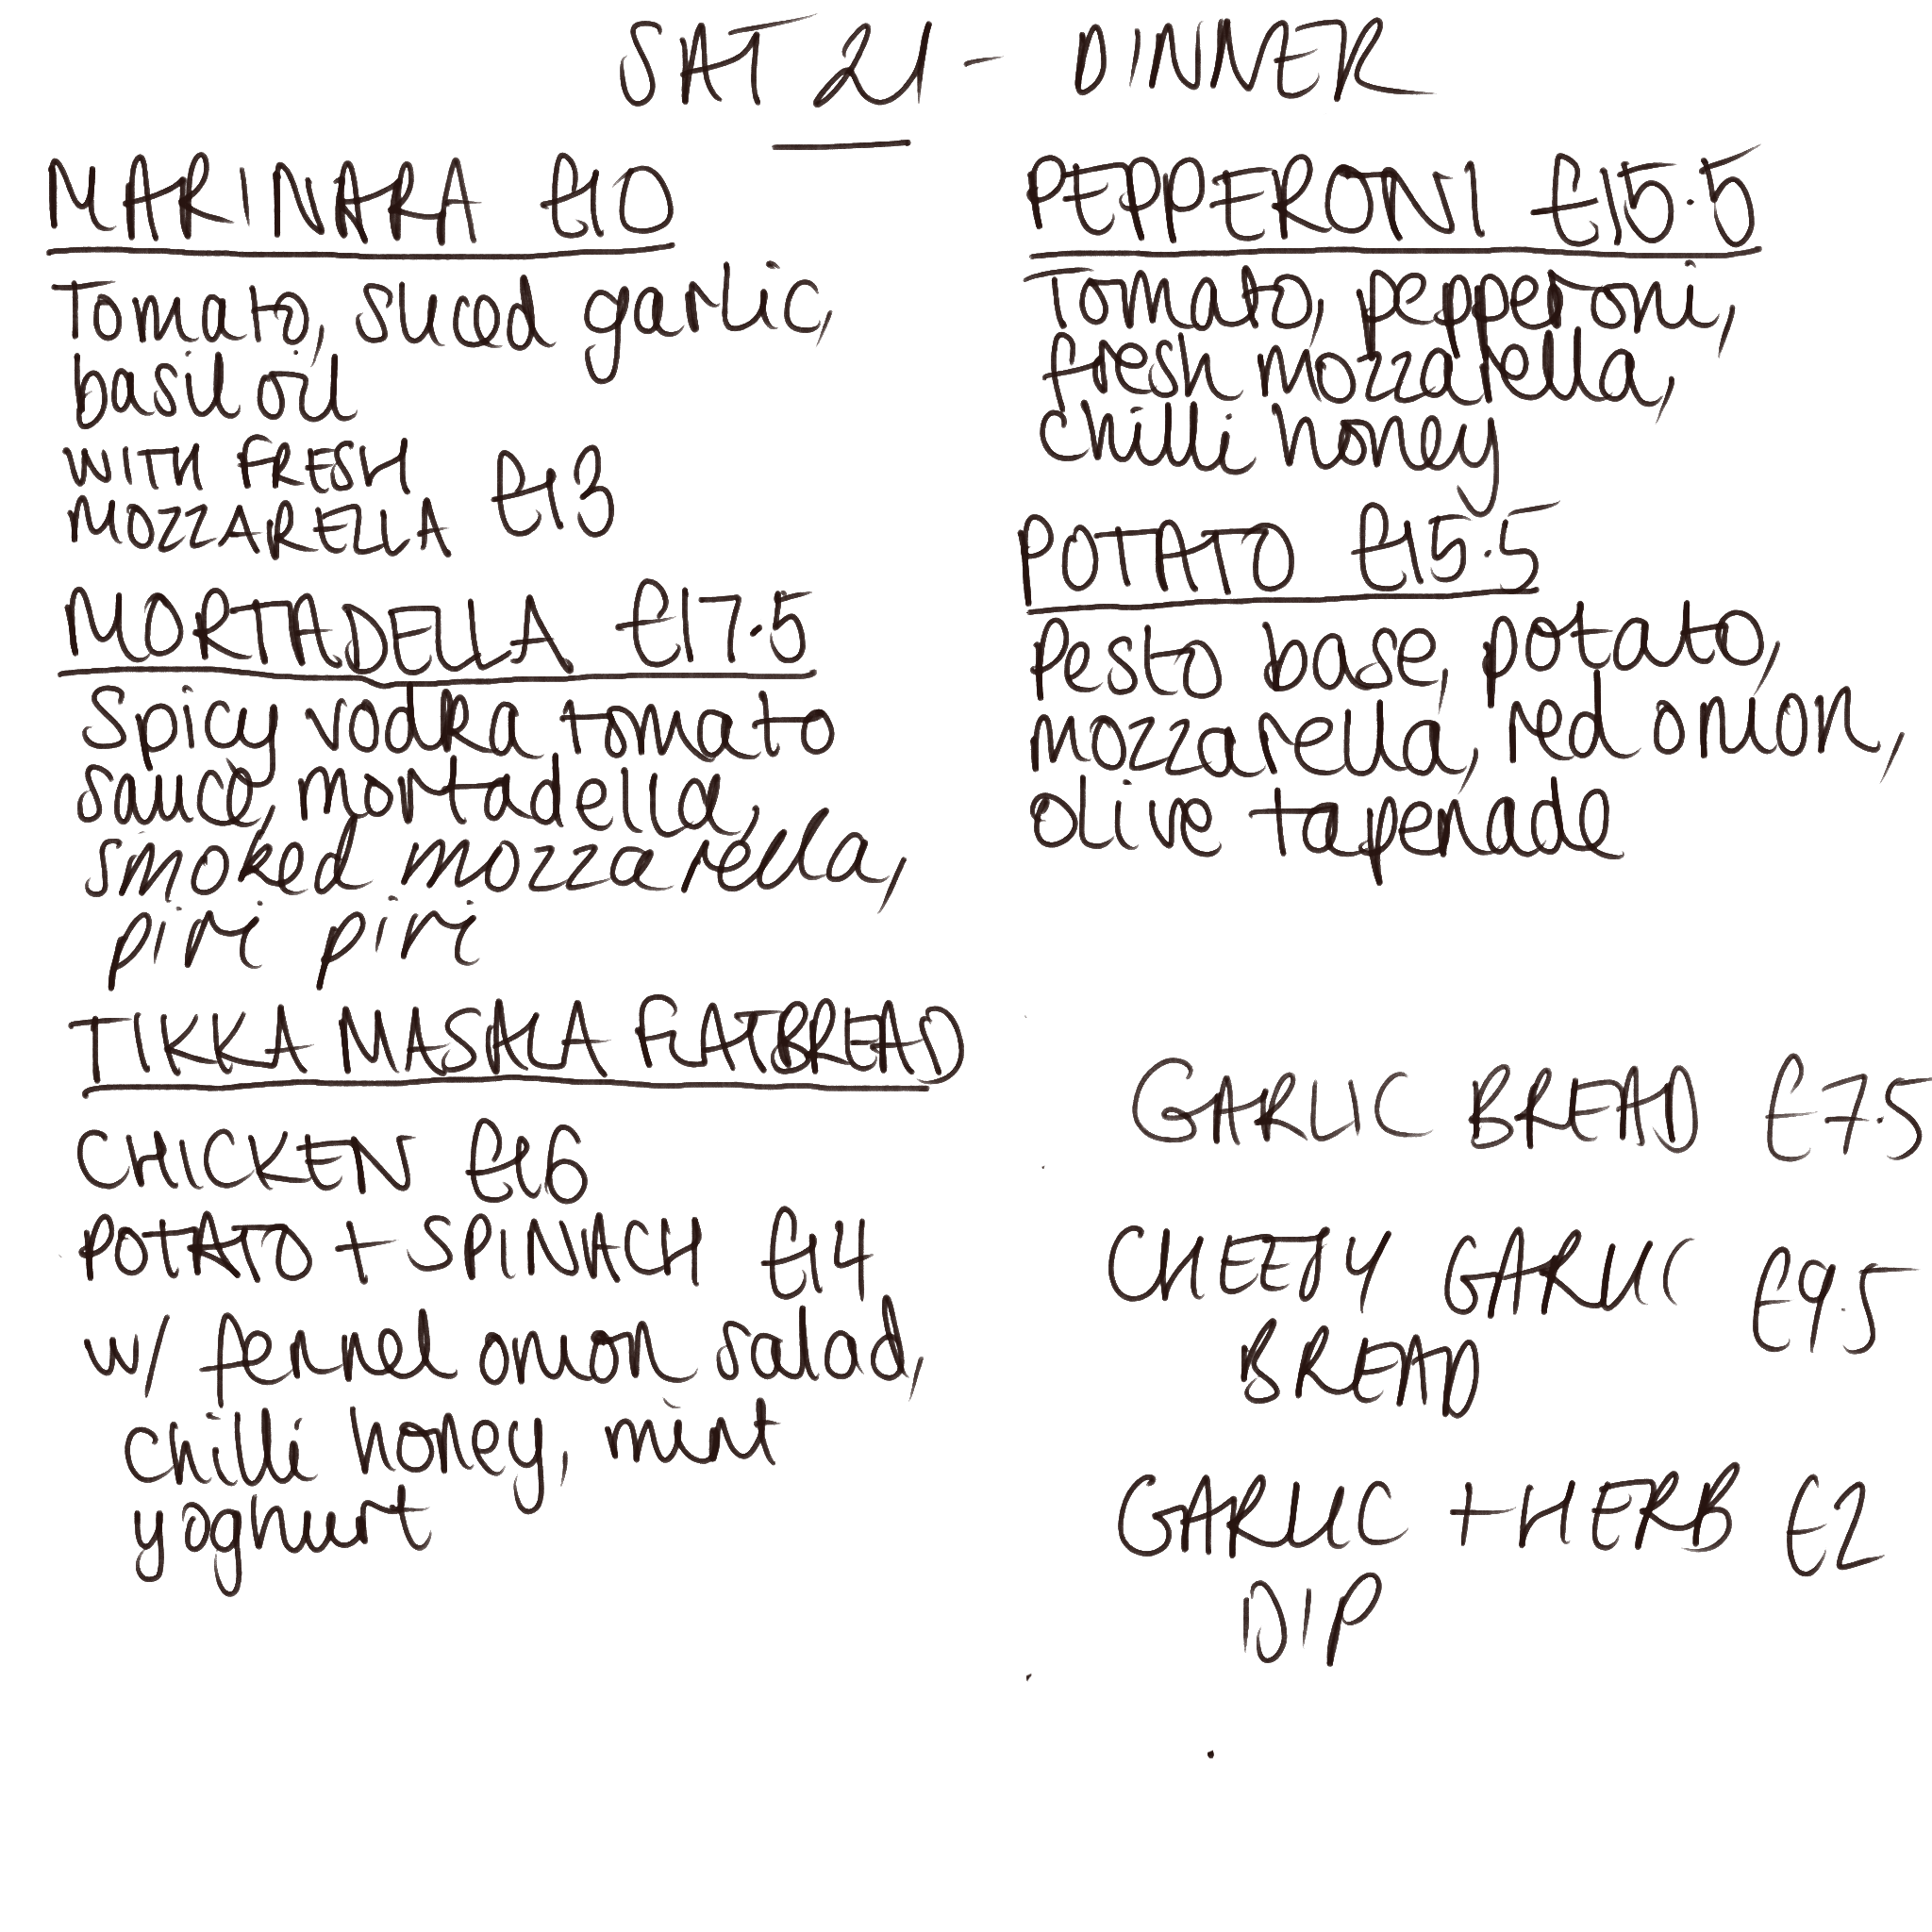 SAT 21 - DINNER
MARINARA £10
Tomato, sliced garlic,
basil oil
WITH FRESH
MOZZARELLA £13
MORTADELLA £17.5
Spicy vodka tomato
sauce, mortadella,
smoked mozzarella,
piri piri
TIKKA MASALA FLATBREAD
CHICKEN £16
POTATO + SPINACH £14
w/ fennel onion salad,
chilli honey, mint
yoghurt
PEPPERONI £15.5
Tomato, pepperoni,
fresh mozzarella,
chilli honey
POTATO £15.5
Pesto base, potato,
mozzarella, red onion,
olive tapenade
GARLIC BREAD £7.5
CHEESY GARLIC £9.5
BREAD
GARLIC + HERB £2
DIP